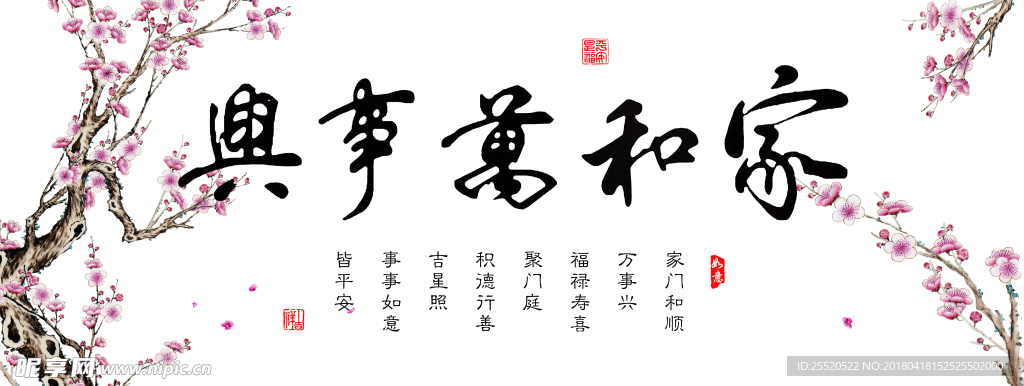 家和萬事興
家门和顺
万事兴
福禄寿喜
聚门庭
积德行善
吉星照
事事如意
皆平安
如意
昵享网 www.nipic.cn
ID:25520522 NO:20180418152525502000